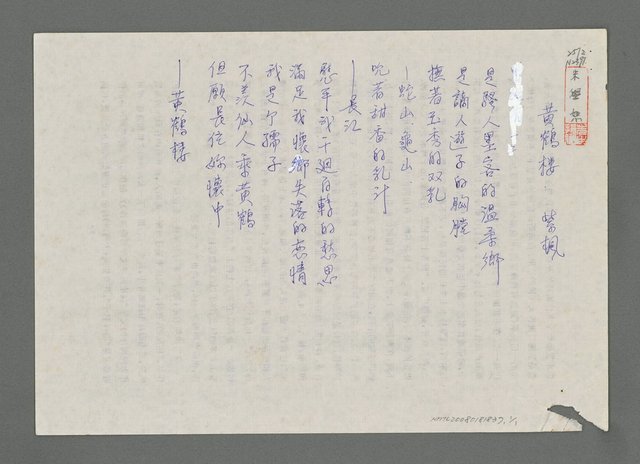 黃鶴楼 紫楓
是騷人墨客的温柔鄉
是謫人遊子的胸膛
撫著玉秀的双乳
—蛇山、龜山
吮著甜香的乳汁
—長江
慰平我千廻百轉的愁思
滿足我懷鄉失落的恋情
我是个孺子
不羡仙人乘黃鶴
但願長住妳懷中
—黃鶴楼
NMTL20080181827, 1/1